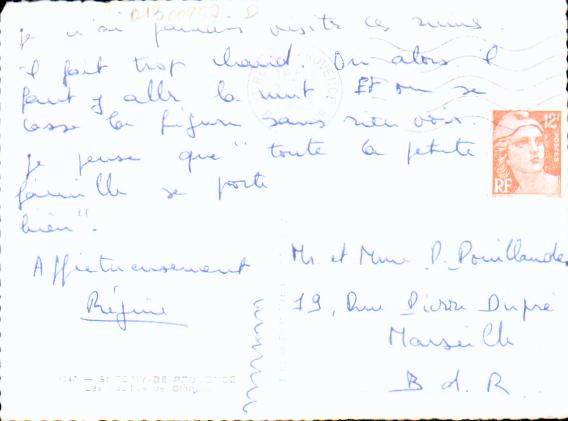 R13 00757. D
je n'ai jamais visité ces ruines.
il fait trop chaud. Ou alors il
faut y aller la nuit. Et on se
casse la figure sans rien voir
je pense que "toute la petite
famille se porte
bien".
Affectueusement
Régine
12F
POSTES
RF
Mr et Mme P. Pouillande
19, Rue Pierre Dupré
Marseille
B d. R.
ST-REMY-DE-PROVENCE